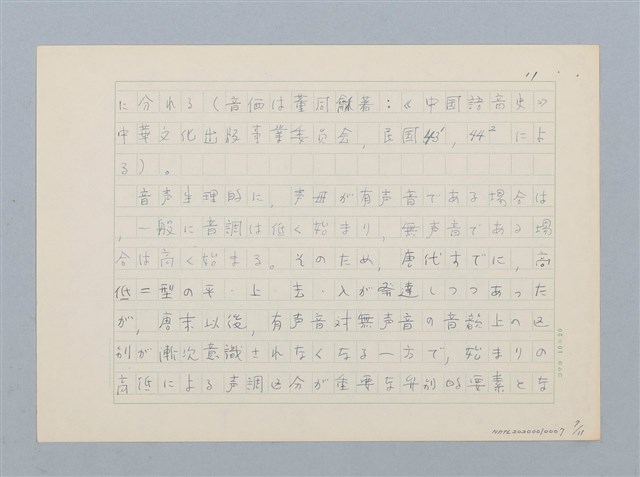 11
に分れる（音価は董同龢著：《中国語音史》
中華文化出版事業委員会，民国43，44²によ
る）。
音声生理的に，声母が有声音である場合は
，一般に音調は低く始まり，無声音である場
合は高く始まる。そのため，唐代すでに，高
低二型の平・上・去・入が発達しつつあった
が，唐末以後，有声音対無声音の音韻上の区
別が漸次意識されなくなる一方で，始まりの
高低による声調区分が重要な弁別的要素とな